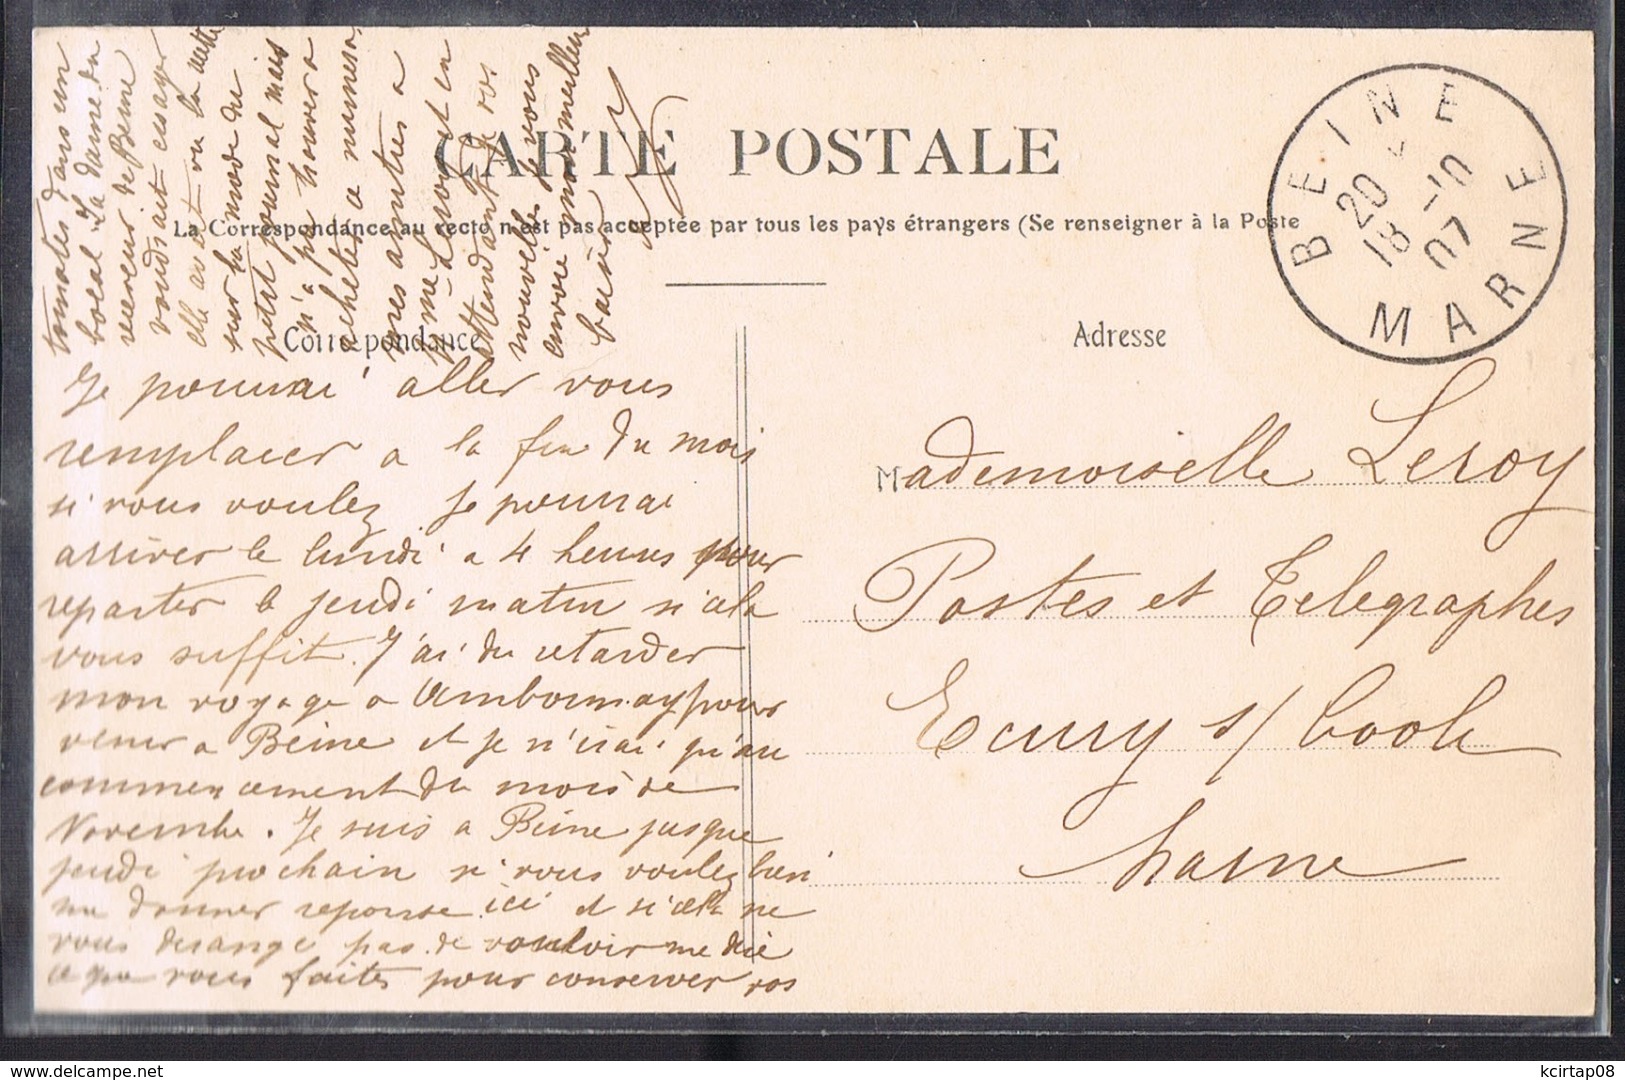 CARTE POSTALE
La Correspondance au recto n'est pas acceptée par tous les pays étrangers (Se renseigner à la Poste
Correspondance
Adresse
BEINE
20
18 -10
07
MARNE
Je pourrai aller vous
remplacer a la fin du mois
si vous voulez je pourrai
arriver le lundi a 4 heures pour
repartir le jeudi matin si cela
vous suffit. J'ai du retarder
mon voyage a Ambonnay pour
venir a Beine et je n'irai qu'au
commencement du mois de
Novembre. Je suis a Beine jusque
jeudi prochain si vous voulez bien
me donner reponse ici et si cela ne
vous derange pas de vouloir me dire
ce que vous faites pour conserver vos
tomates dans un
bocal La dame du
receveur de Beine
voudrait essayer
elle avait vu la recette
sur la mode du
petit journal mais
n'a pu trouver a
acheter ce numero,
mes amitres a
Mme Leroy et en
attendant de vos
nouvelles je vous
envoie mon meilleur
baiser
Mademoiselle Leroy
Postes et Télégraphes
Ecury s/ Coole
Marne
kcirtap08